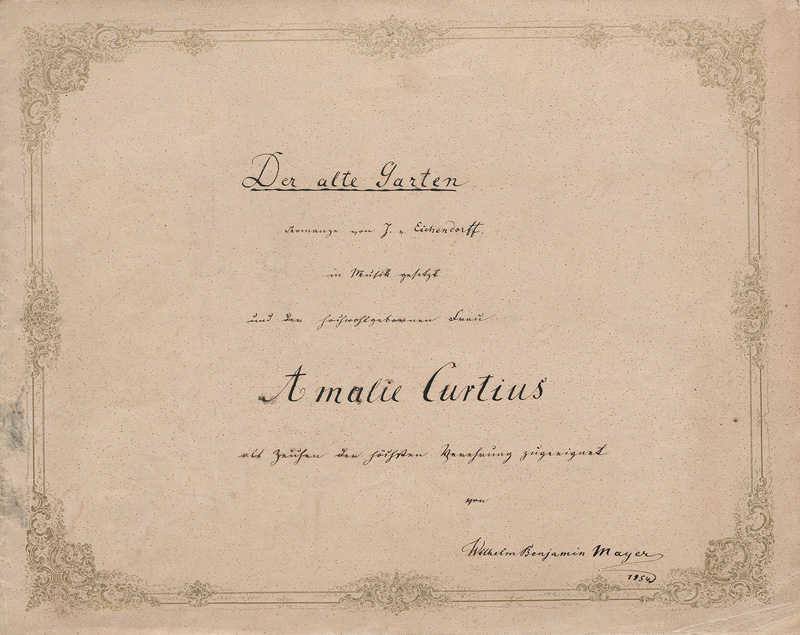 Der alte Garten
Romanze von J. v. Eichendorff.
in Musik gesetzt
und der hochwohlgebornen Frau
Amalie Curtius
als Zeichen der höchsten Verehrung zugeeignet
von
Wilhelm Benjamin Mayer